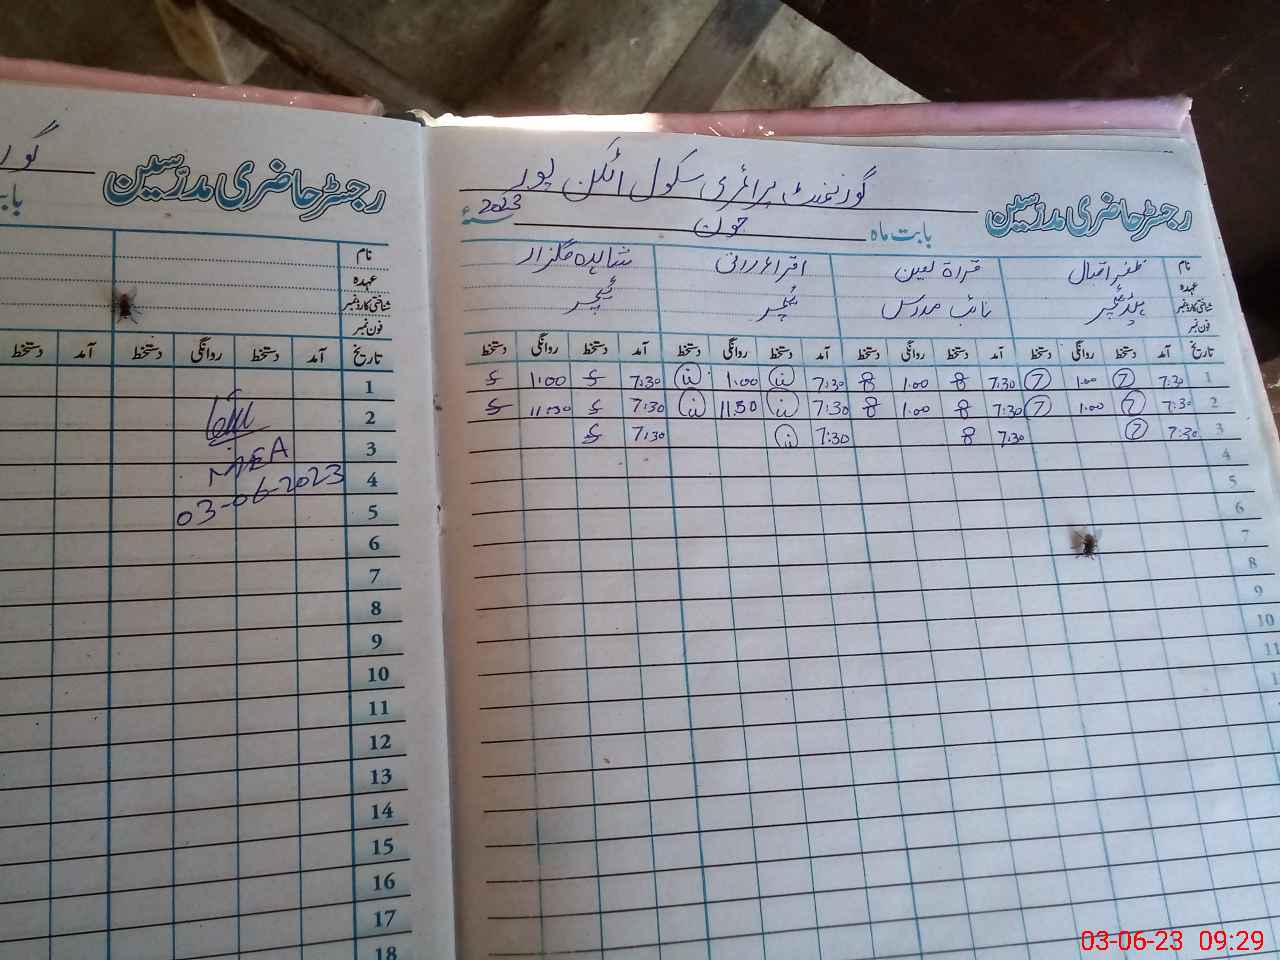 رجسٹر حاضری مدرسین
گورنمنٹ پرائمری سکول اٹکن پور
بابت ماہ جون 2023ء
نام ظفر اقبال قراۃ لعین اقراء رانی شاہدہ گلزار
عہدہ ہیڈ ٹیچر نائب مدرس ٹیچر ٹیچر
شناختی کارڈ نمبر
فون نمبر
تاریخ آمد دستخط روانگی دستخط آمد دستخط روانگی دستخط آمد دستخط روانگی دستخط آمد دستخط روانگی دستخط
1 7:30 1:00 7:30 1:00 7:30 1:00 7:30 1:00
2 7:30 1:00 7:30 1:00 7:30 11:30 7:30 11:30
3 7:30 7:30 7:30 7:30
4
5
6
7
8
9
10
11
رجسٹر حاضری مدرسین
گور
با
نام
عہدہ
شناختی کارڈ نمبر
فون نمبر
تاریخ آمد دستخط روانگی دستخط آمد دستخط
1
2
3
4
5
6
7
8
9
10
11
12
13
14
15
16
17
18
MEA
03-06-2023
03-06-23 09:29